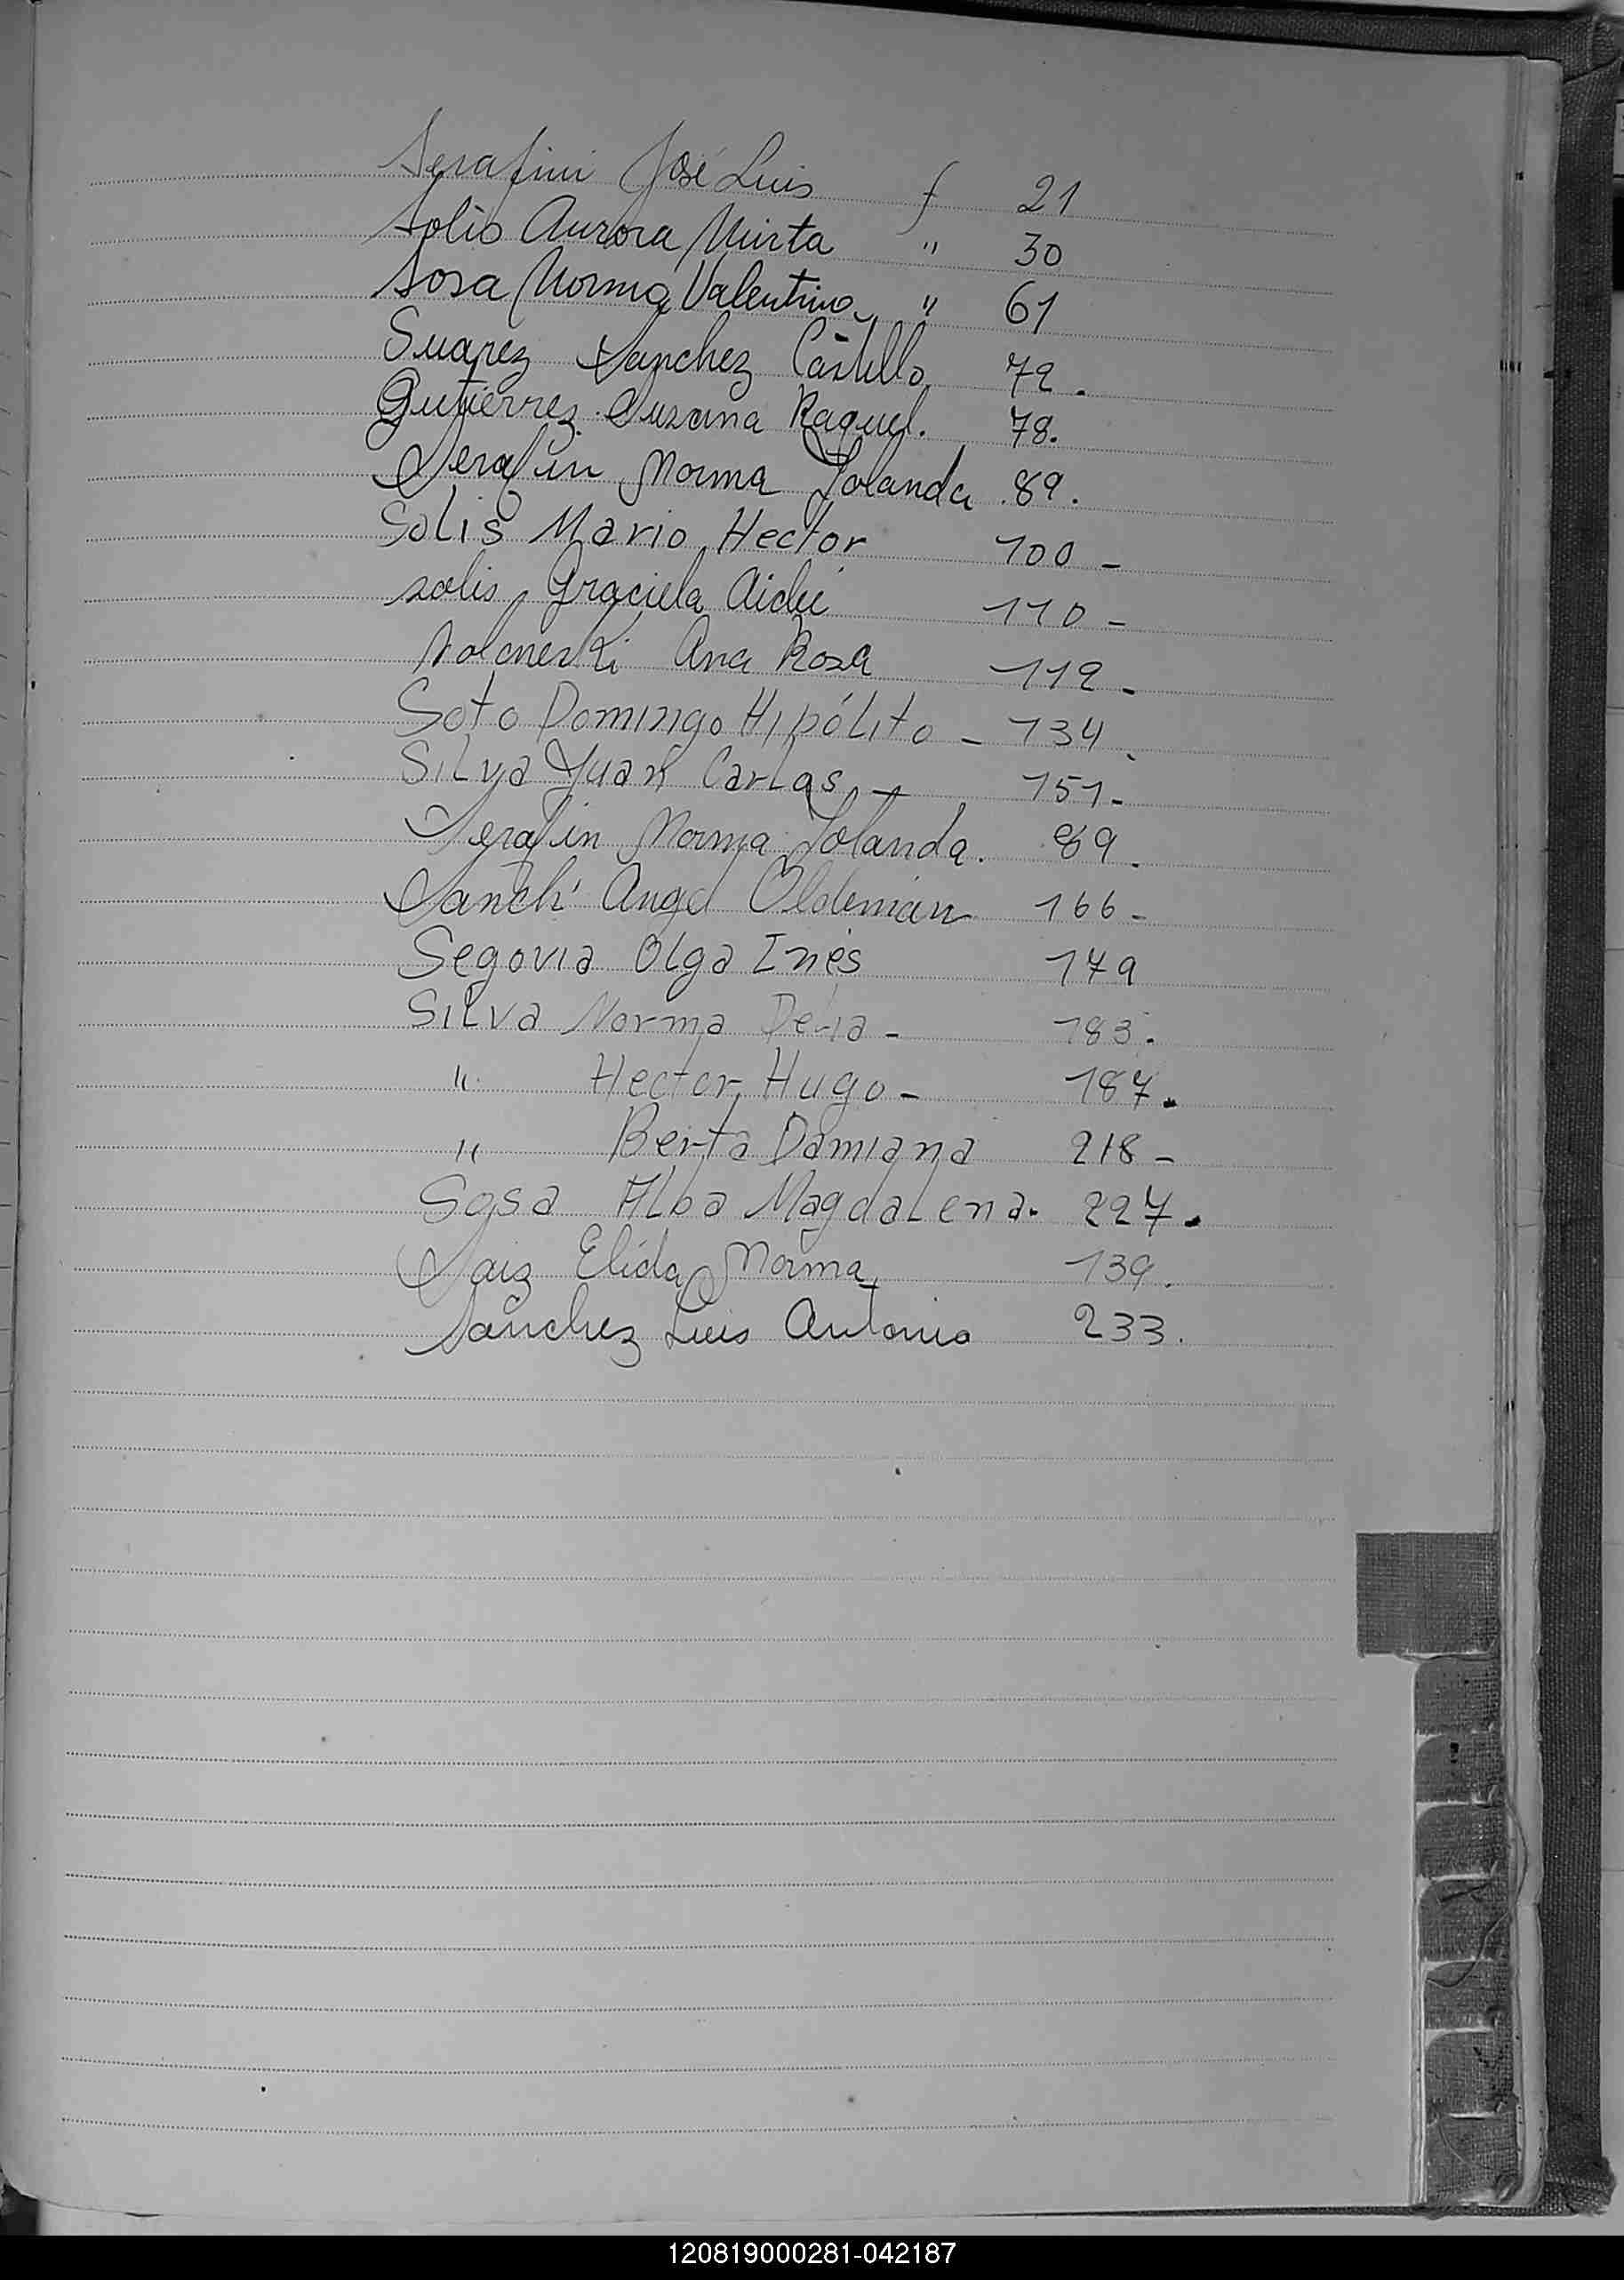 Serafini José Luis f 21
Solis Aurora Mirta " 30
Sosa Norma Valentina " 61
Suarez Sanchez Castillo 72.
Gutierrez Susana Raquel. 78.
Serafin Norma Iolanda 89.
Solis Mario Hector 100 -
solis Graciela Aidée 110 -
Ana Rosa 112 -
Soto Domingo Hipólito - 134
Silva Juan Carlos - 151 -
Serafin Norma Iolanda. 89.
Angel 166 -
Segovia Olga Inés 179
Silva Norma 183.
" Hector Hugo - 187.
" Berta Damiana 218 -
Sosa Alba Magdalena. 227.
Saiz Elida Norma 139.
Sanchez Luis Antonio 233.
120819000281-042187